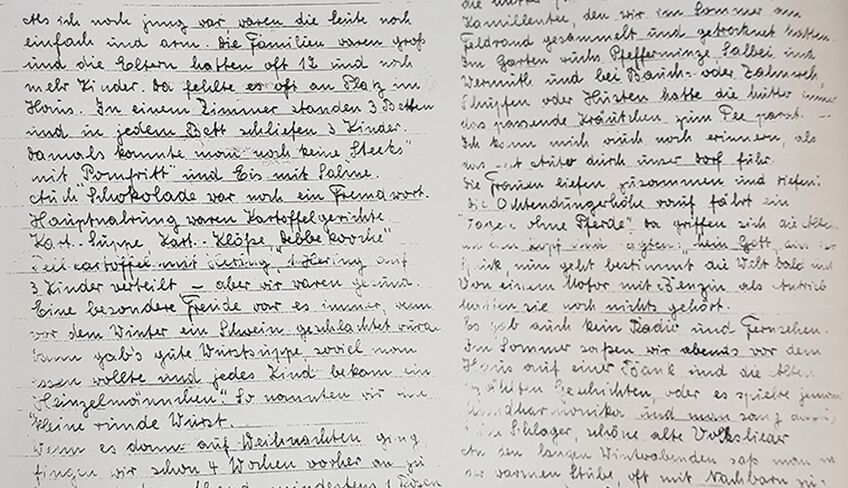 Als ich noch jung war waren die Leute noch
einfach und arm. Die Familien waren groß
und die Eltern hatten oft 12 und noch
mehr Kinder. Da fehlte es oft an Platz im
Haus. In einem Zimmer standen 3 Betten
und in jedem Bett schliefen 3 Kinder.
Damals kannte man noch keine "Steeks"
mit "Pomfritt" und Eis mit Sahne.
Auch "Schokolade" war noch ein Fremdwort.
Hauptnahrung waren Kartoffelgerichte
Kart.-Suppe Kart.-Klöße, "Debbekooche"
Pellkartoffel mit Hering, 1 Hering auf
3 Kinder verteilt – aber wir waren gesund.
Eine besondere Freude war es immer, wenn
vor dem Winter ein Schwein geschlachtet wurde
dann gab's gute Wurstsuppe, soviel man
essen wollte und jedes Kind bekam ein
"Heinzelmännchen". So nannten wir eine
kleine runde Wurst.
Wenn es dann auf Weihnachten ging,
fingen wir schon 4 Wochen vorher an zu
mindestens 1 Rosen
die Mutter
Kamillentee, den wir im Sommer am
Feldrand gesammelt und getrocknet hatten.
Im Garten wuchs Pfefferminze, Salbei und
Wermuth und bei Bauch- oder Zahnweh,
Schnupfen oder Husten hatte die Mutter immer
das passende Kräutchen zum Tee parat. –
Ich kann mich auch noch erinnern, als
das Auto durch unser Dorf fuhr.
Die Frauen liefen zusammen und riefen:
Die Ochtendungerhöhe rauf fährt ein
"Wagen ohne Pferde". Da griffen sich die Alten
an den Kopf und sagten: "Mein Gott,
Spuk, nun geht bestimmt die Welt bald unter
Von einem Motor mit Benzin als Antrieb
hatten sie noch nichts gehört.
Es gab auch kein Radio und Fernsehen.
Im Sommer saßen wir abends vor dem
Haus auf einer Bank und die Alten
erzählten Geschichten, oder es spielte jemand
Mundharmonika und man sang dazu,
Schlager, schöne alte Volkslieder
An den langen Winterabenden saß man in
der warmen Stube, oft mit Nachbarn zu-